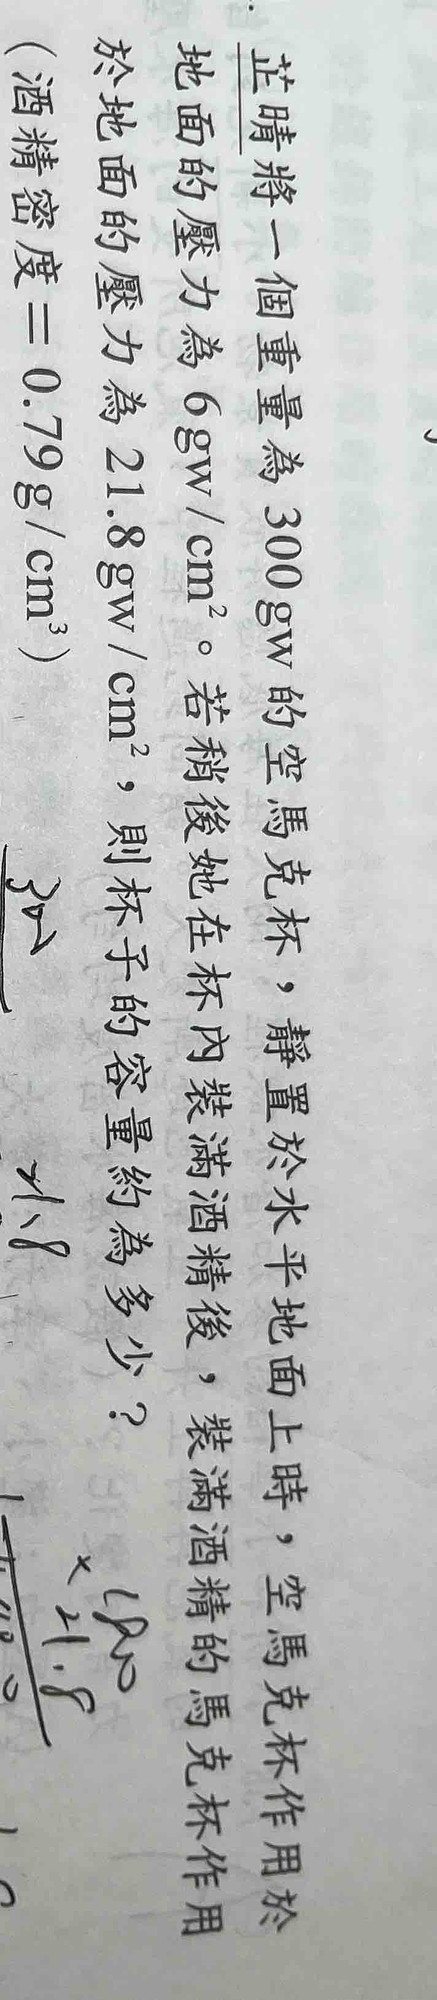 芷晴將一個重量為300gw的空馬克杯，靜置於水平地面上時，空馬克杯作用於
地面的壓力為6gw/cm²。若稍後她在杯內裝滿酒精後，裝滿酒精的馬克杯作用
於地面的壓力為21.8gw/cm²，則杯子的容量約為多少？
（酒精密度＝0.79g/cm³）
21.8
× 21.8